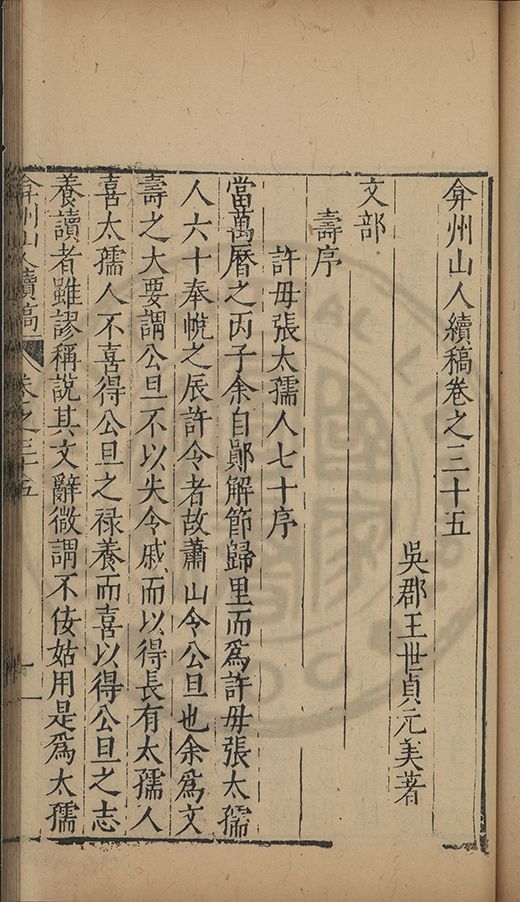 弇州山人續稿卷之三十五
吳郡王世貞元美著
文部
壽序
許母張太孺人七十序
當萬曆之丙子余自鄖解節歸里而爲許母張太孺
人六十奉帨之辰許令者故蕭山令公旦也余爲文
壽之大要謂公旦不以失令戚而以得長有太孺人
喜太孺人不喜得公旦之祿養而喜以得公旦之志
養讀者雖謬稱說其文辭微謂不佞姑用是爲太孺
弇州山人續稿 卷之三十五 一